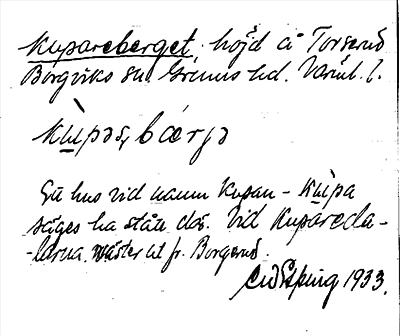 Kupareberget, höjd å Torserud
Borgviks sn Grums hd. Värml. l.
kùpaʂ, bæ̀rjə
Ett hus vid namn Kupan - kùpa
säges ha stått där. Vid Kupareda-
-larna. väster ut fr. Borgerud.
1933.